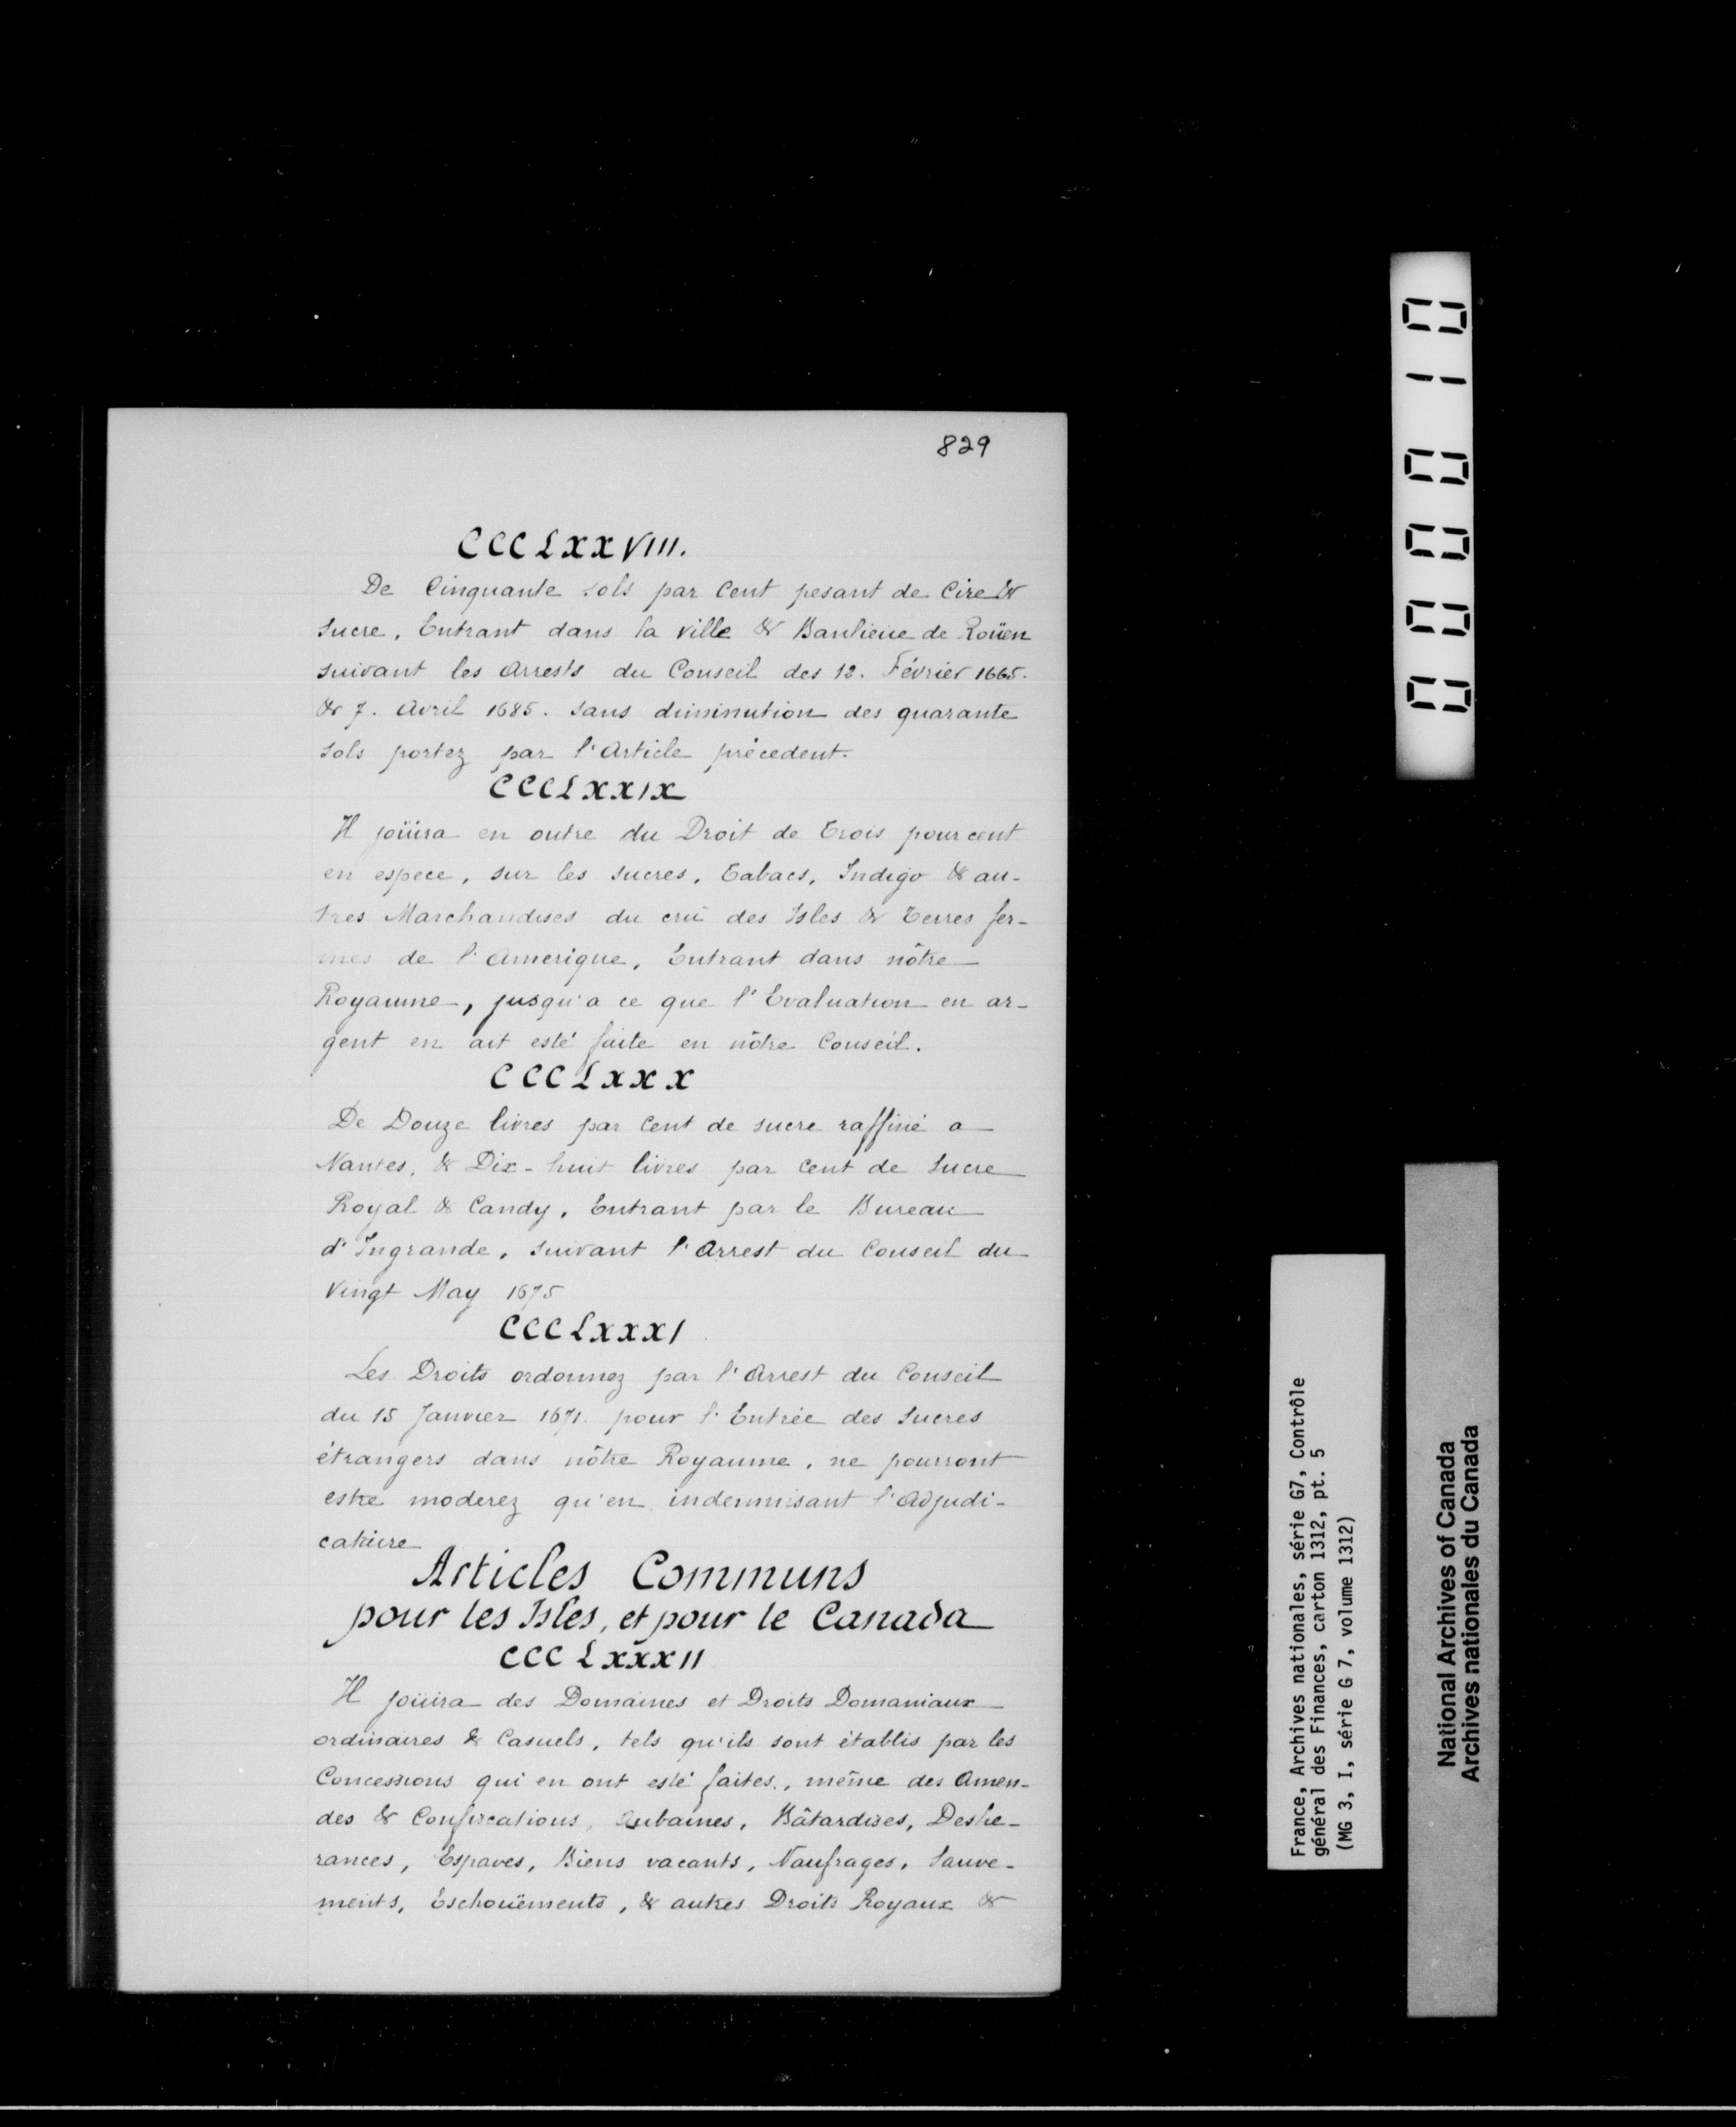 829
CCCLXXVIII.
De Cinquante sols par Cent pesant de Cire &
Sucre, Entrant dans la ville & Banlieüe de Roüen
suivant les Arrests du Conseil des 12. Février 1665.
& 7. Avril 1685. sans diminution des quarante
sols portez par l'Article précedent.
CCCLXXIX
Il joüira en outre du Droit de Trois pour cent
en espece, sur les Sucres, Tabacs, Indigo & au-
tres Marchandises du crû des Isles & Terres fer-
mes de l'Amerique, Entrant dans nôtre
Royaume, jusqu'a ce que l'Evaluation en ar-
gent en ait esté faite en nôtre Conseil.
CCCLXXX
De Douze livres par Cent de sucre raffiné a
Nantes, & Dix-huit livres par Cent de Sucre
Royal & Candy, Entrant par le Bureau
d'Ingrande, suivant l'Arrest du Conseil du
Vingt May 1675
CCCLXXXI
Les Droits ordonnez par l'Arrest du Conseil
du 15 Janvier 1671. pour l'Entrée des Sucres
étrangers dans nôtre Royaume, ne pourront
estre moderez qu'en indemnisant l'Adjudi-
cataire
Articles Communs
pour les Isles, et pour le Canada
CCCLXXXII
Il joüira des Domaines et Droits Domaniaux
ordinaires & Casuels, tels qu'ils sont établis par les
Concessions qui en ont esté faites, même des Amen-
des & Confiscations, Aubaines, Bâtardises, Deshe-
rances, Espaves, Biens vacants, Naufrages, Sauve-
ments, Eschoüements, & autres Droits Royaux &
000010
France, Archives nationales, série G7, Contrôle
général des Finances, carton 1312, pt. 5
(MG 3, I, série G 7, volume 1312)
National Archives of Canada
Archives nationales du Canada